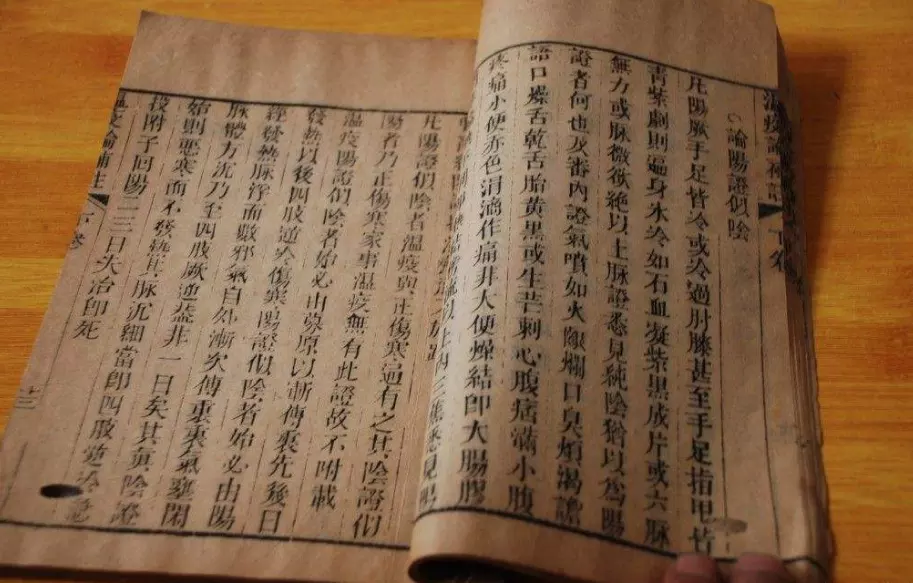 溫疫論補註 下卷
論陽證似陰
凡陽厥手足皆冷或冷過肘膝甚至手足指甲皆
青紫劇則遍身氷冷如石血凝紫黑成片或六脉
無力或脉微欲絶以上脉證悉見純陰猶以爲陽
證者何也及審內證氣噴如火齦爛口臭煩渴譫
語口燥舌乾舌胎黃黑或生芒刺心腹痞滿小腹
疼痛小便赤色涓滴作痛非大便燥結卽大腸膠
以上內三焦悉見陽
凡陽證似陰者溫疫與正傷寒通有之其陰證似
陽者乃正傷寒家事溫疫無有此證故不附載
溫疫陽證似陰者始必由募原以漸傳裏先幾日
發熱以後四肢逆冷傷寒陽證似陰者始必由陽
經發熱脉浮而數邪氣自外漸次傳裏裏氣壅閉
脉體方沉乃至四肢厥逆葢非一日矣其眞陰證
始則惡寒而不發熱其脉沉細當卽四肢逆冷急
投附子回陽二三日失治卽死
溫疫論補註 下卷 十三